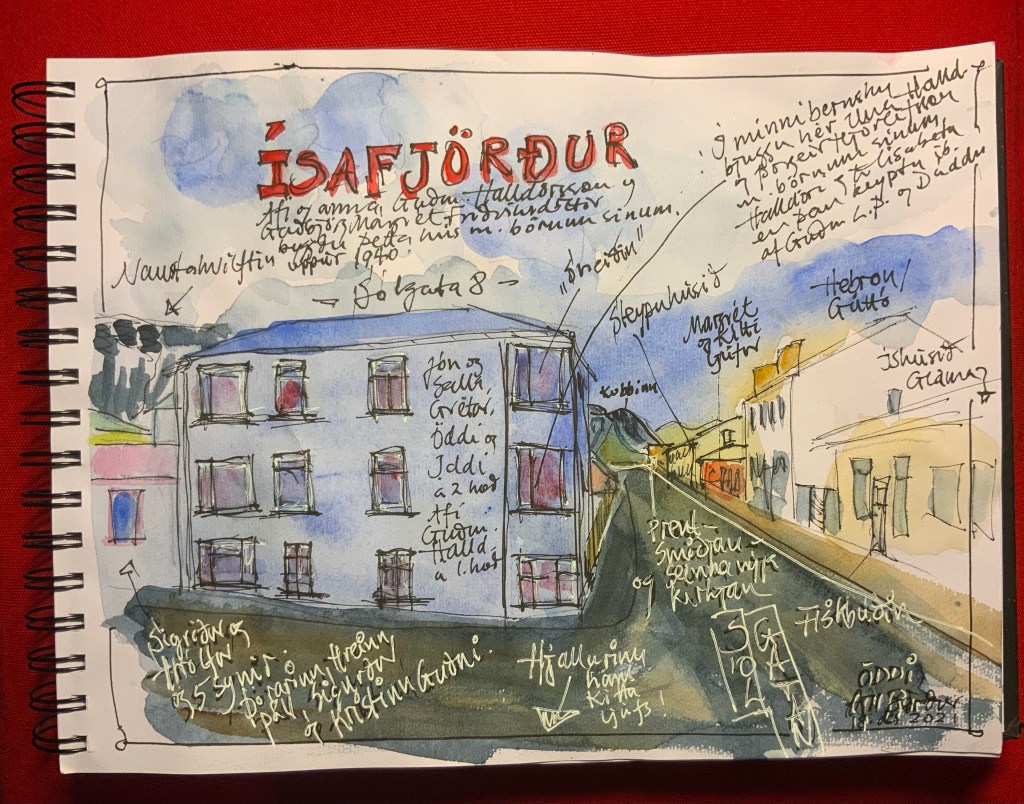 ÍSAFJÖRÐUR
Afi og amma, Guðm. Halldórsson og
Guðbjörg Margrét Friðriksdóttir
byggðu þetta hús m. börnum sínum.
uppúr 1940
Naustahvilftin
Sólgata 8
Í minni bernsku
bjuggu hér Una Halld.
og Þorgeir Hjörleifsson
m. börnum sínum
Halldóri
Lísabeta
en þau keyptu íb.
af Guðm L.P. og Daddu
Steypuhúsið
Margrét
og Kitti
ljúfur
Hebron/
Gúttó
íshúsið
Glámur
Kubbinn
Jón og
Salla,
Grétar,
Öddi og
a 2 hæð
Afi
Guðm.
Halld.
a 1. hæð
Prent-
Smiðjan
og
kirkjan
Sigríður og
Hrólfur
og 5 synir.
Þórarinn, Hreinn
Sigurður
og Kristinn Guðni.
Hjallurinn
hans
Kitta
ljúfs!
SÓL
GATAN
Fiskbúðin
ÖDDI
2021